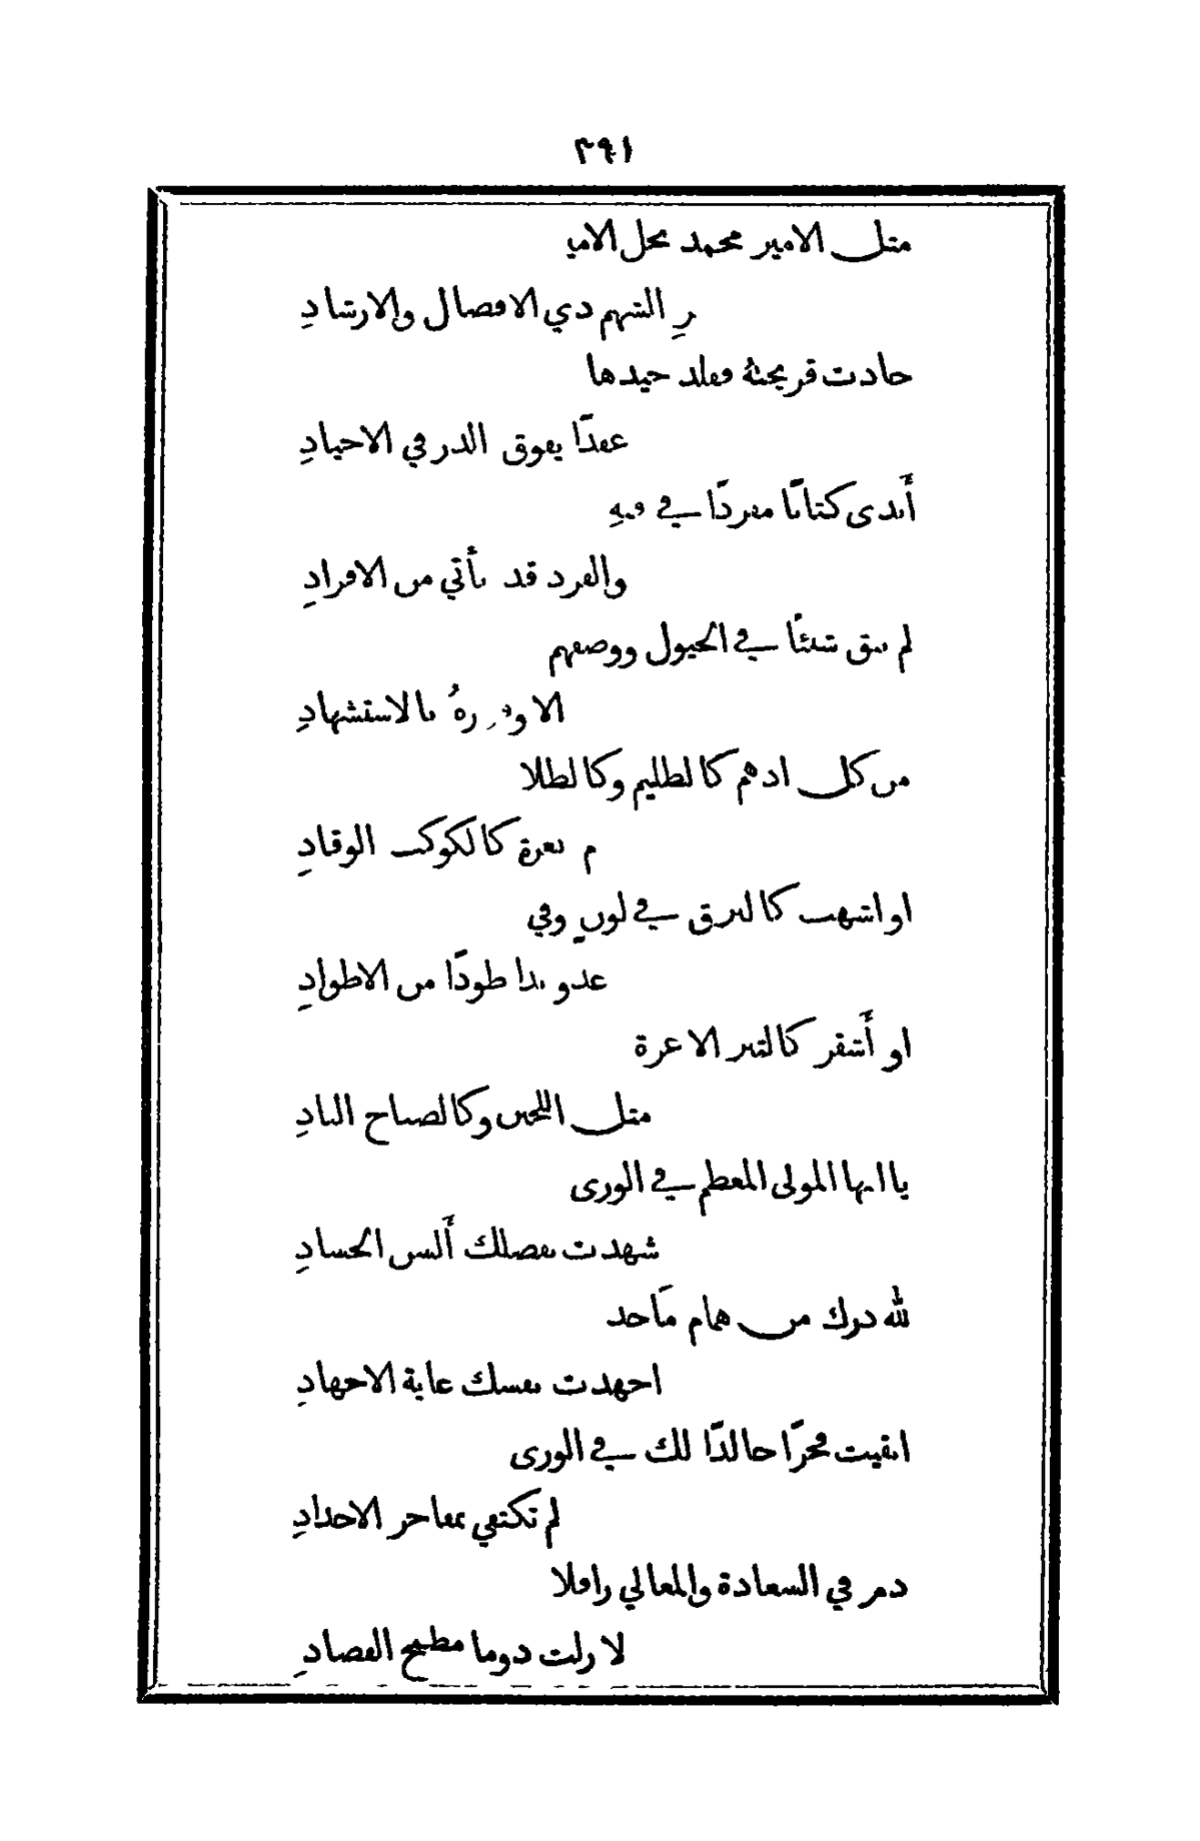 ٣٩١
مثل الامير محمد نجل الامي
رِ الشهم ذي الافضال والارشادِ
جادت قريحتهُ فقلد جيدها
عقدًا يفوق الدر في الاجيادِ
أَبدى كتابًا مفردًا في فنهِ
والفرد قد يأتي من الافرادِ
لم يبق شيئًا في الخيول ووصفهم
الا و رهُ بالاستشهادِ
من كل ادهم كالظليم وكالظلا
م بغرة كالكوكب الوقادِ
او اشهب كالبرق في لونٍ وفي
عدو بدا طودًا من الاطوادِ
او أَشقر كالتبر الا غرة
مثل اللجين وكالصباح البادِ
يا ايها المولى المعظم في الورى
شهدت بفضلك أَلسن الحسادِ
لله درك من همام مَاجد
اجهدت نفسك غاية الاجهادِ
ابقيت فخرًا خالدًا لك في الورى
لم تكتفي بمفاخر الاجدادِ
دم في السعادة والمعالي رافلا
لا زلت دوما مطمح القصادِ